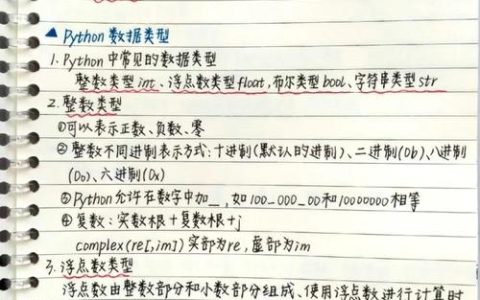 ▲ Python 数据类型
1. Python 中常见的数据类型
整数类型 int、浮点数类型 float, 布尔类型 bool、字符串类型 str
2. 整数类型
①可以表示正数、负数、零
② 整数不同进制表示方式: 十进制(默认的进制)、二进制(0b)、八进制
(0o)、六进制(0x)
③Python 允许在数字中加_, 如100_000_00和10000000相等
④ 复数: 实数根+复数根+j
complex(re[,im]) 实部为re, 虚部为im
3. 浮点数类型
浮点数由整数部分和小数部分组成、使用浮点数进行计算时